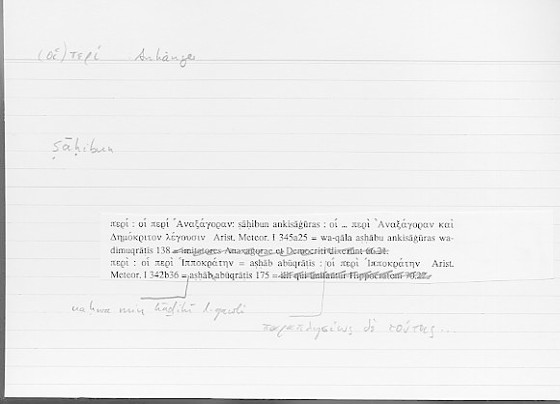 (οἱ) περί Anhänger
ṣāḥibun
περί : οἱ περὶ Ἀναξάγοραν: sāḥibun ankisāġūras : οἱ ... περὶ Ἀναξάγοραν καὶ
Δημόκριτον λέγουσιν Arist. Meteor. I 345a25 = wa-qāla asḥābu ankisāġūras wa-
dimuqrātis 138 = imitatores Anaxagorae et Democriti dixerunt 66.21.
περί : οἱ περὶ Ἱπποκράτην = asḥāb abūqrātis : οἱ περὶ Ἱπποκράτην Arist.
Meteor. I 342b36 = asḥāb abūqrātis 175 = illi qui imitantur Hippocratem 70.27.
min hādihi
παραπλησίως δὲ τούτοις ...